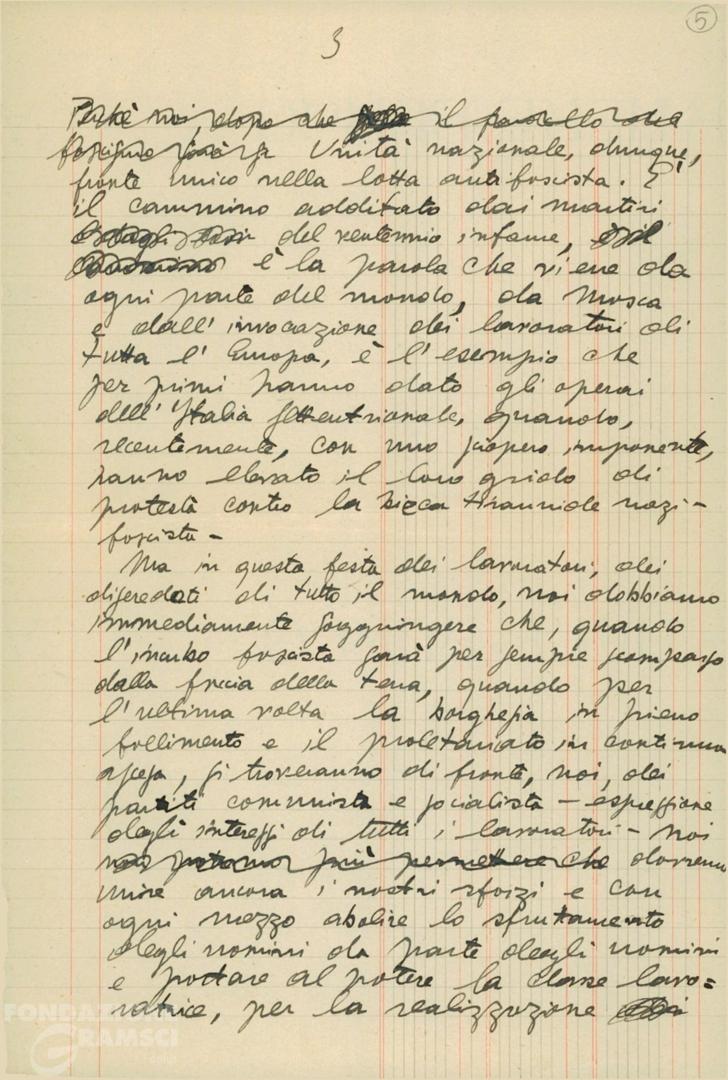 5
3
Perché noi, dopo che il fardello del
fascismo sarà Unità nazionale, dunque,
fronte unico nella lotta antifascista. È
il cammino additato dai martiri
del ventennio infame,
è la parola che viene da
ogni parte del mondo, da Mosca
e dall'invocazione dei lavoratori di
tutta l'Europa, è l'esempio che
per primi hanno dato gli operai
dell'Italia settentrionale, quando,
recentemente, con uno sciopero imponente,
hanno elevato il loro grido di
protesta contro la bieca tirannide nazi-
fascista -
Ma in questa festa dei lavoratori, dei
diseredati di tutto il mondo, noi dobbiamo
immediamente soggiungere che, quando
l'incubo fascista sarà per sempre scomparso
dalla faccia della terra, quando per
l'ultima volta la borghesia in pieno
fallimento e il proletariato in continua
ascesa, si troveranno di fronte, noi, dei
partiti comunista e socialista - espressione
degli interessi di tutti i lavoratori - noi
non potremo più permettere che dovremo
unire ancora i nostri sforzi e con
ogni mezzo abolire lo sfruttamento
degli uomini da parte degli uomini
e portare al potere la classe lavo=
ratrice, per la realizzazione
FONDAZIONE
GRAMSCI